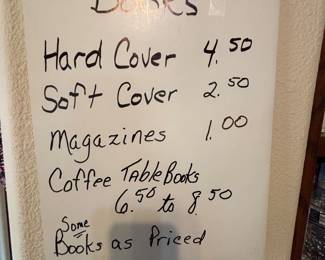 Books
Hard Cover 4.50
Soft Cover 2.50
Magazines 1.00
Coffee Table Books
6.50 to 8.50
Some
Books as Priced